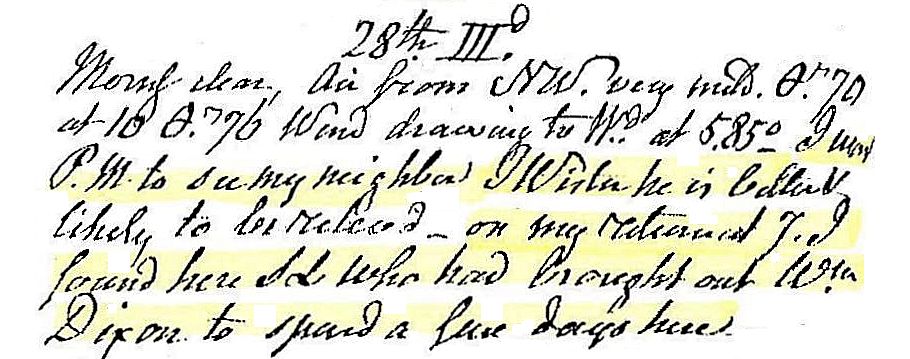 28th. IIId.
Morng clear, Air from NW. very mild. θ.r 70
at 10 θ.r 76 Wind drawing to Wd. at 5.85° I went
P.M. to see my neighbor J Wister he is better &
likely to be releaced _ on my return at 7. I
found here S L who had brought out Wm
Dixon to spend a few days here.